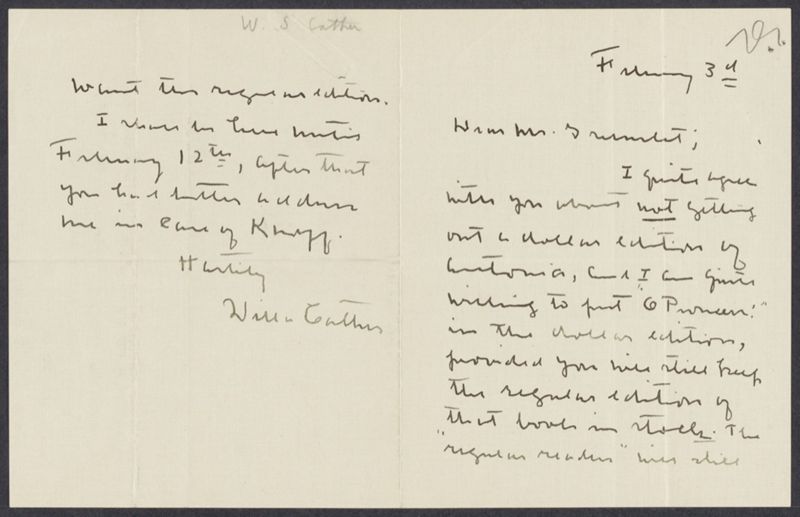 February 3d
Dear Mr. Greenslet;
I quite agree
with you about not getting
out a dollar edition of
Antonia, and I am quite
willing to put "O Pioneers!"
in the dollar edition,
provided you will still keep
the regular edition of
that book in stock. The
"regular reader" will still
W. S Cather
want the regular edition.
I shall be here until
February 12th, after that
you had better address
me in care of Knopf.
Hastily
Willa Cather